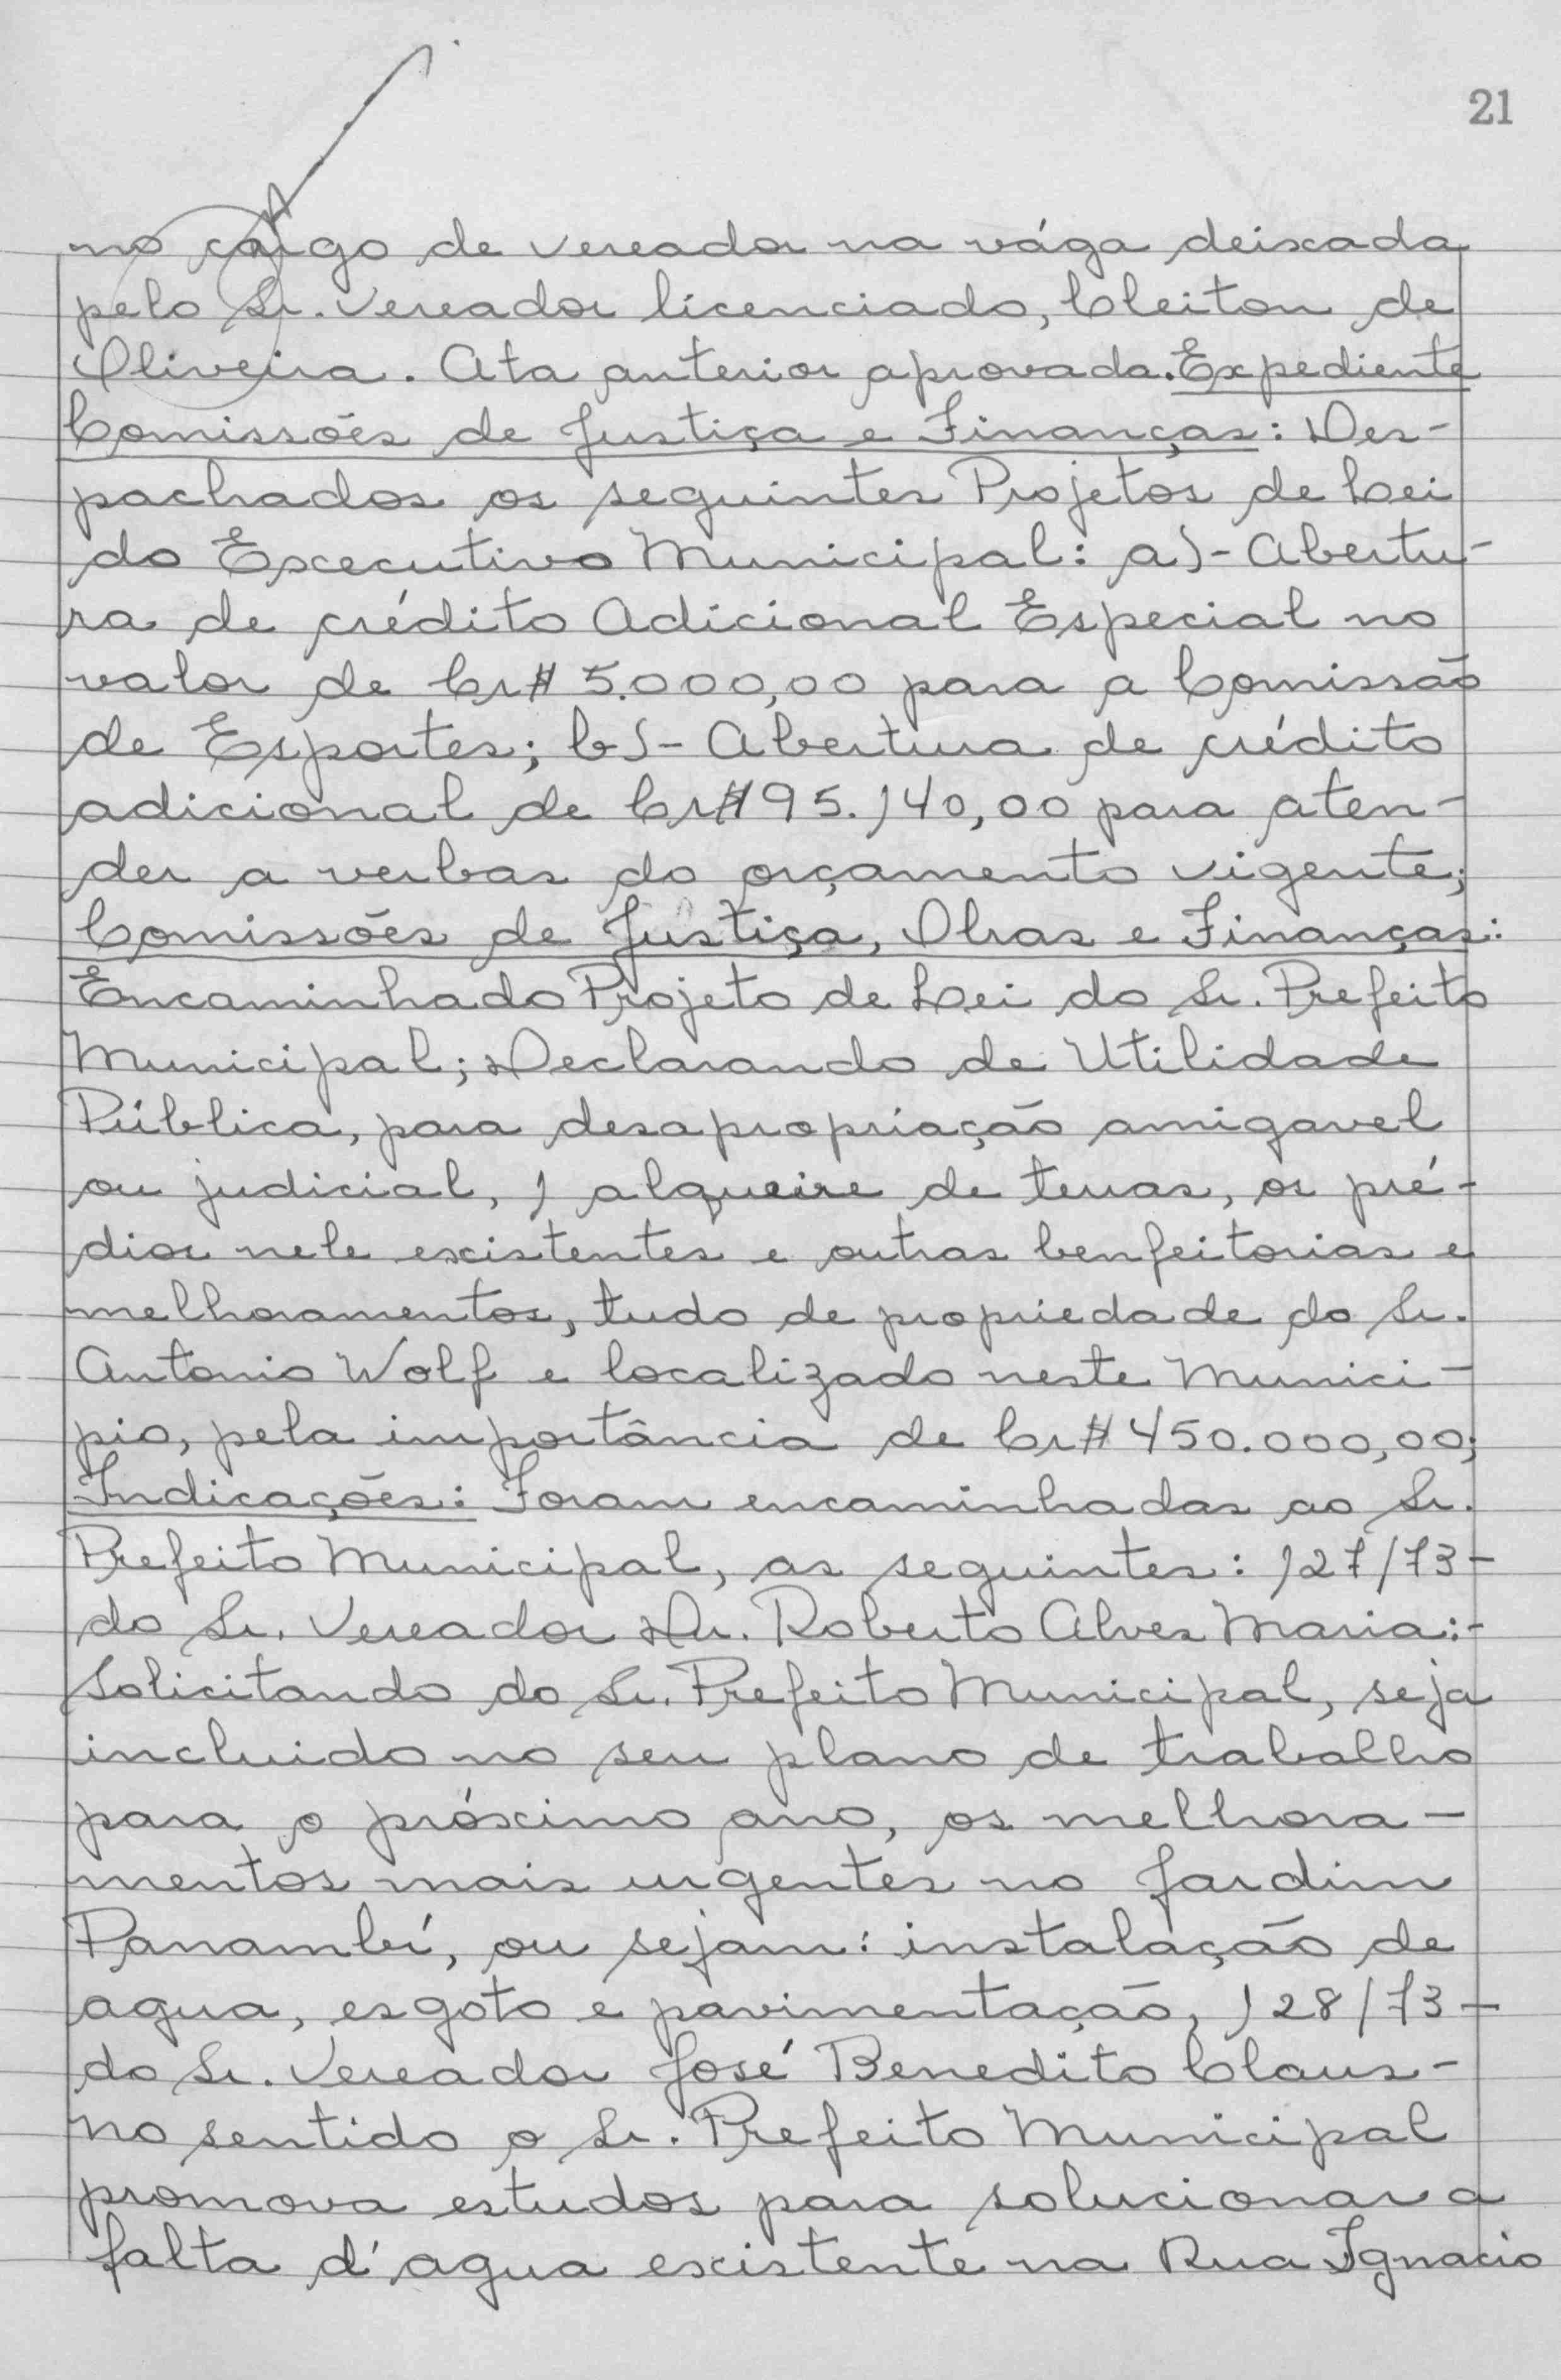 21
no cargo de vereador na vága deixada
pelo Sr. Vereador licenciado, Cleiton de
Oliveira. Ata anterior aprovada. Expediente
Comissões de Justiça e Finanças: Des-
pachados os seguintes Projetos de Lei
do Executivo Municipal: a)- Abertu-
ra de crédito Adicional Especial no
valor de Cr$ 5.000,00 para a Comissão
de Esportes; b)- Abertura de crédito
adicional de Cr$ 195.140,00 para aten-
der a verbas do orçamento vigente;
Comissões de Justiça, Obras e Finanças:
Encaminhado Projeto de Lei do Sr. Prefeito
Municipal; Declarando de Utilidade
Pública, para desapropriação amigavel
ou judicial, 1 alqueire de terras, os pré-
dios nele existentes e outras benfeitorias e
melhoramentos, tudo de propriedade do Sr.
Antonio Wolf e localizado neste Munici-
pio, pela importância de Cr$ 450.000,00;
Indicações: Foram encaminhadas ao Sr.
Prefeito Municipal, as seguintes: 127/73-
do Sr. Vereador Dr. Roberto Alves Maria:-
Solicitando do Sr. Prefeito Municipal, seja
incluido no seu plano de trabalho
para o próximo ano, os melhora-
mentos mais urgentes no Jardim
Panambí, ou sejam: instalação de
agua, esgoto e pavimentação, 128/73-
do Sr. Vereador José Benedito Claus-
no sentido o Sr. Prefeito Municipal
promova estudos para solucionar a
falta d'agua existente na Rua Ignacio